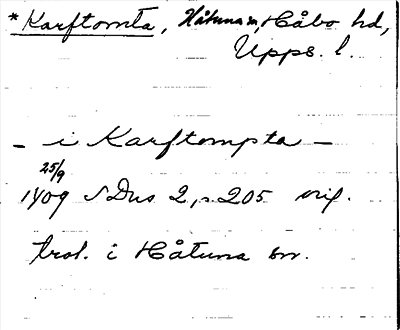 *Karftomta, Håtuna sn, Håbo hd,
Upps. l.
- i Karftompta -
25/9
1409 SDns 2, s. 205 orig.
trol. i Håtuna sn.